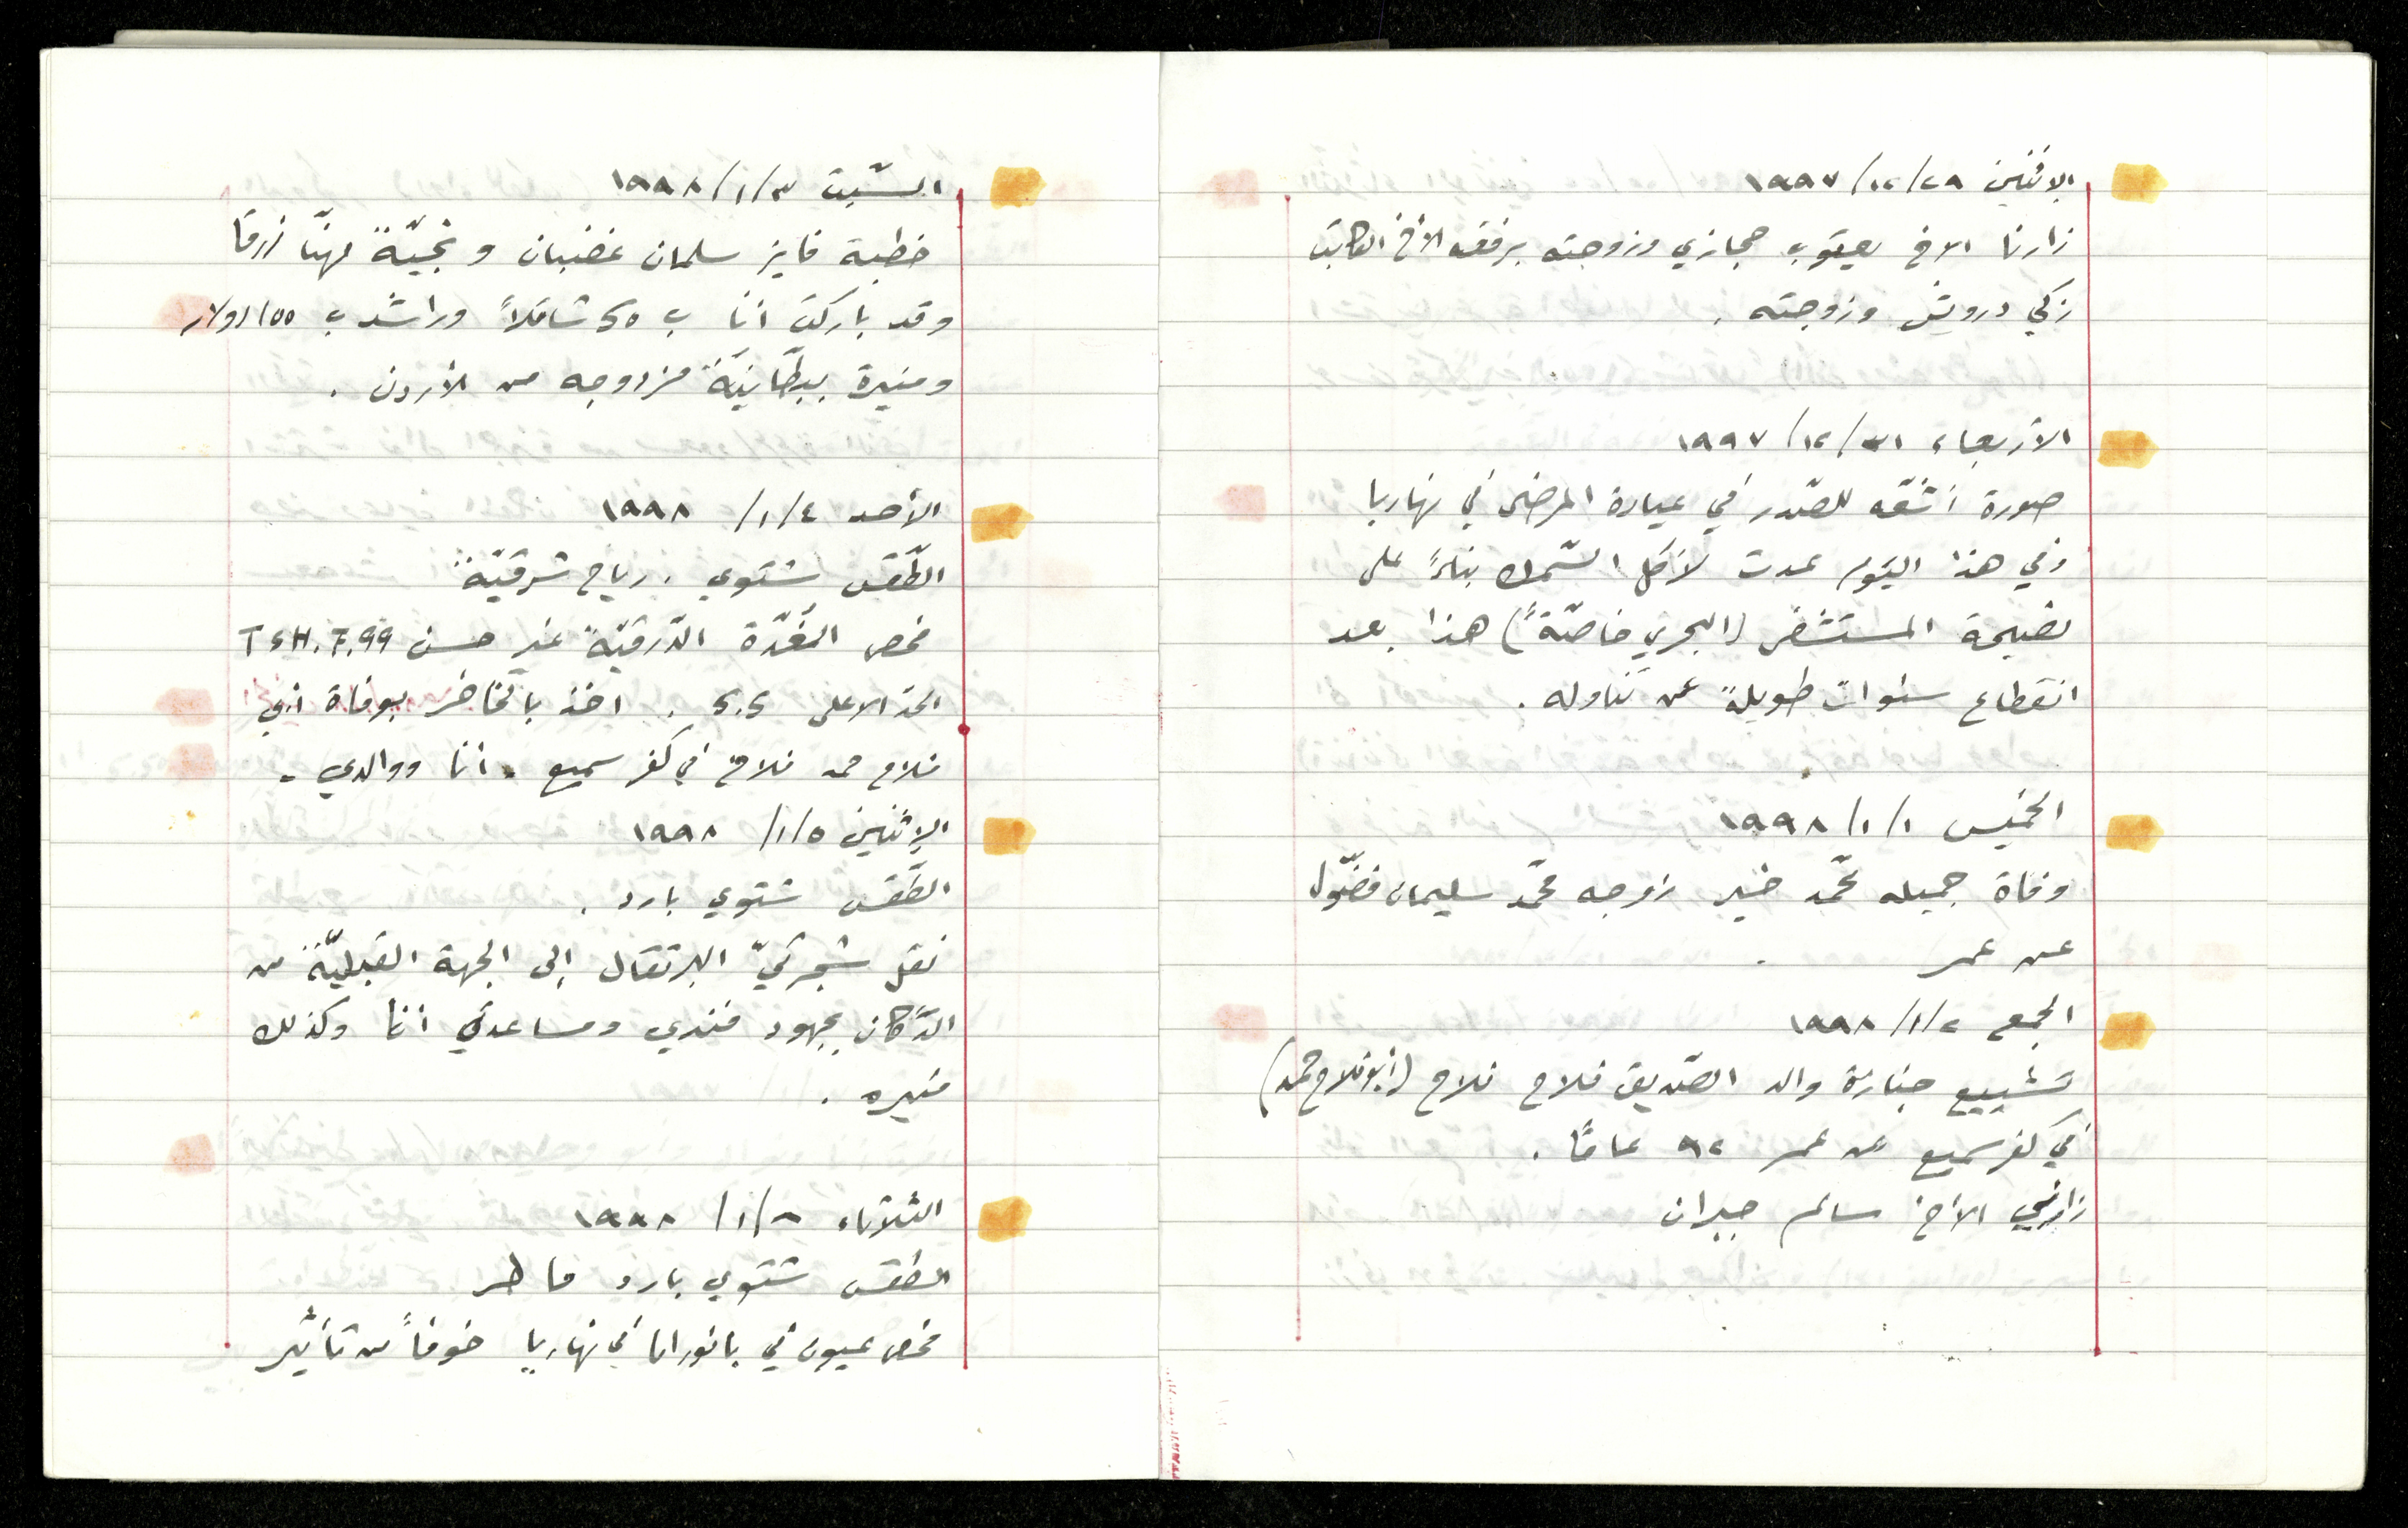 الاثنين ٢٩/١٢/١٩٩٧
زارنا الاخ يعقوب حجازي وزوجته برفقه الأخ الكاتب
زكي درويش وزوجته .
الأربعاء ٣١/١٢/١٩٩٧
صورة أشعّه للصّدر في عيادة المرضى في نهاريا
وفي هذا اليوم عدت لأكل السّمك بناءً على
نصيحة المستشفى (البحري خاصّةً) هذا بعد
انقطاع سنوات طويلة عن تناوله .
الخميس ١/١/١٩٩٨
وفاة جميله محمّد خير زوجه محمّد سليمان فضّول
عن عمر .
الجمعه ٢/١/١٩٩٨
تشييع جنازة والد الصّديق فلاح فلاح (أبو فلاح حمد)
في كفر سميع عن عمر ٩٢ عامًا .
زارني الأخ سالم جبران
السّبت ٣/١/١٩٩٨
خطبة فايز سلمان غضبان و نجيّة مهنّا زرقا
وقد باركت انا ب ٢٥٠ شاقلاً وراشد ب ١٥٥ دولار
ومنيرة ببطّانيّة مزدوجه من الأردن .
الأحد ٤/١/١٩٩٨
الطّقس شتوي . رياح شرقيّة
فحص الغدّة الدّرقيّة غير حسن TSH. 7.99
الحدّ الاعلى ٥.٥ . اخذ بالخاطر بوفاة ابي
فلاح حمد فلاح في كفر سميع . أنا ووالدي .
الإثنين ٥/١/١٩٩٨
الطّقس شتوي بارد .
نقل شجرتيّ البرتقال إلى الجهة القبليّة من
الدّكان بجهود فندي ومساعدتي أنا وكذلك
منيره .
الثلاثاء ٦/١/١٩٩٨
الطقس شتوي بارد ماطر
فحص عيون في بانوراما في نهاريا خوفاً من تأثير